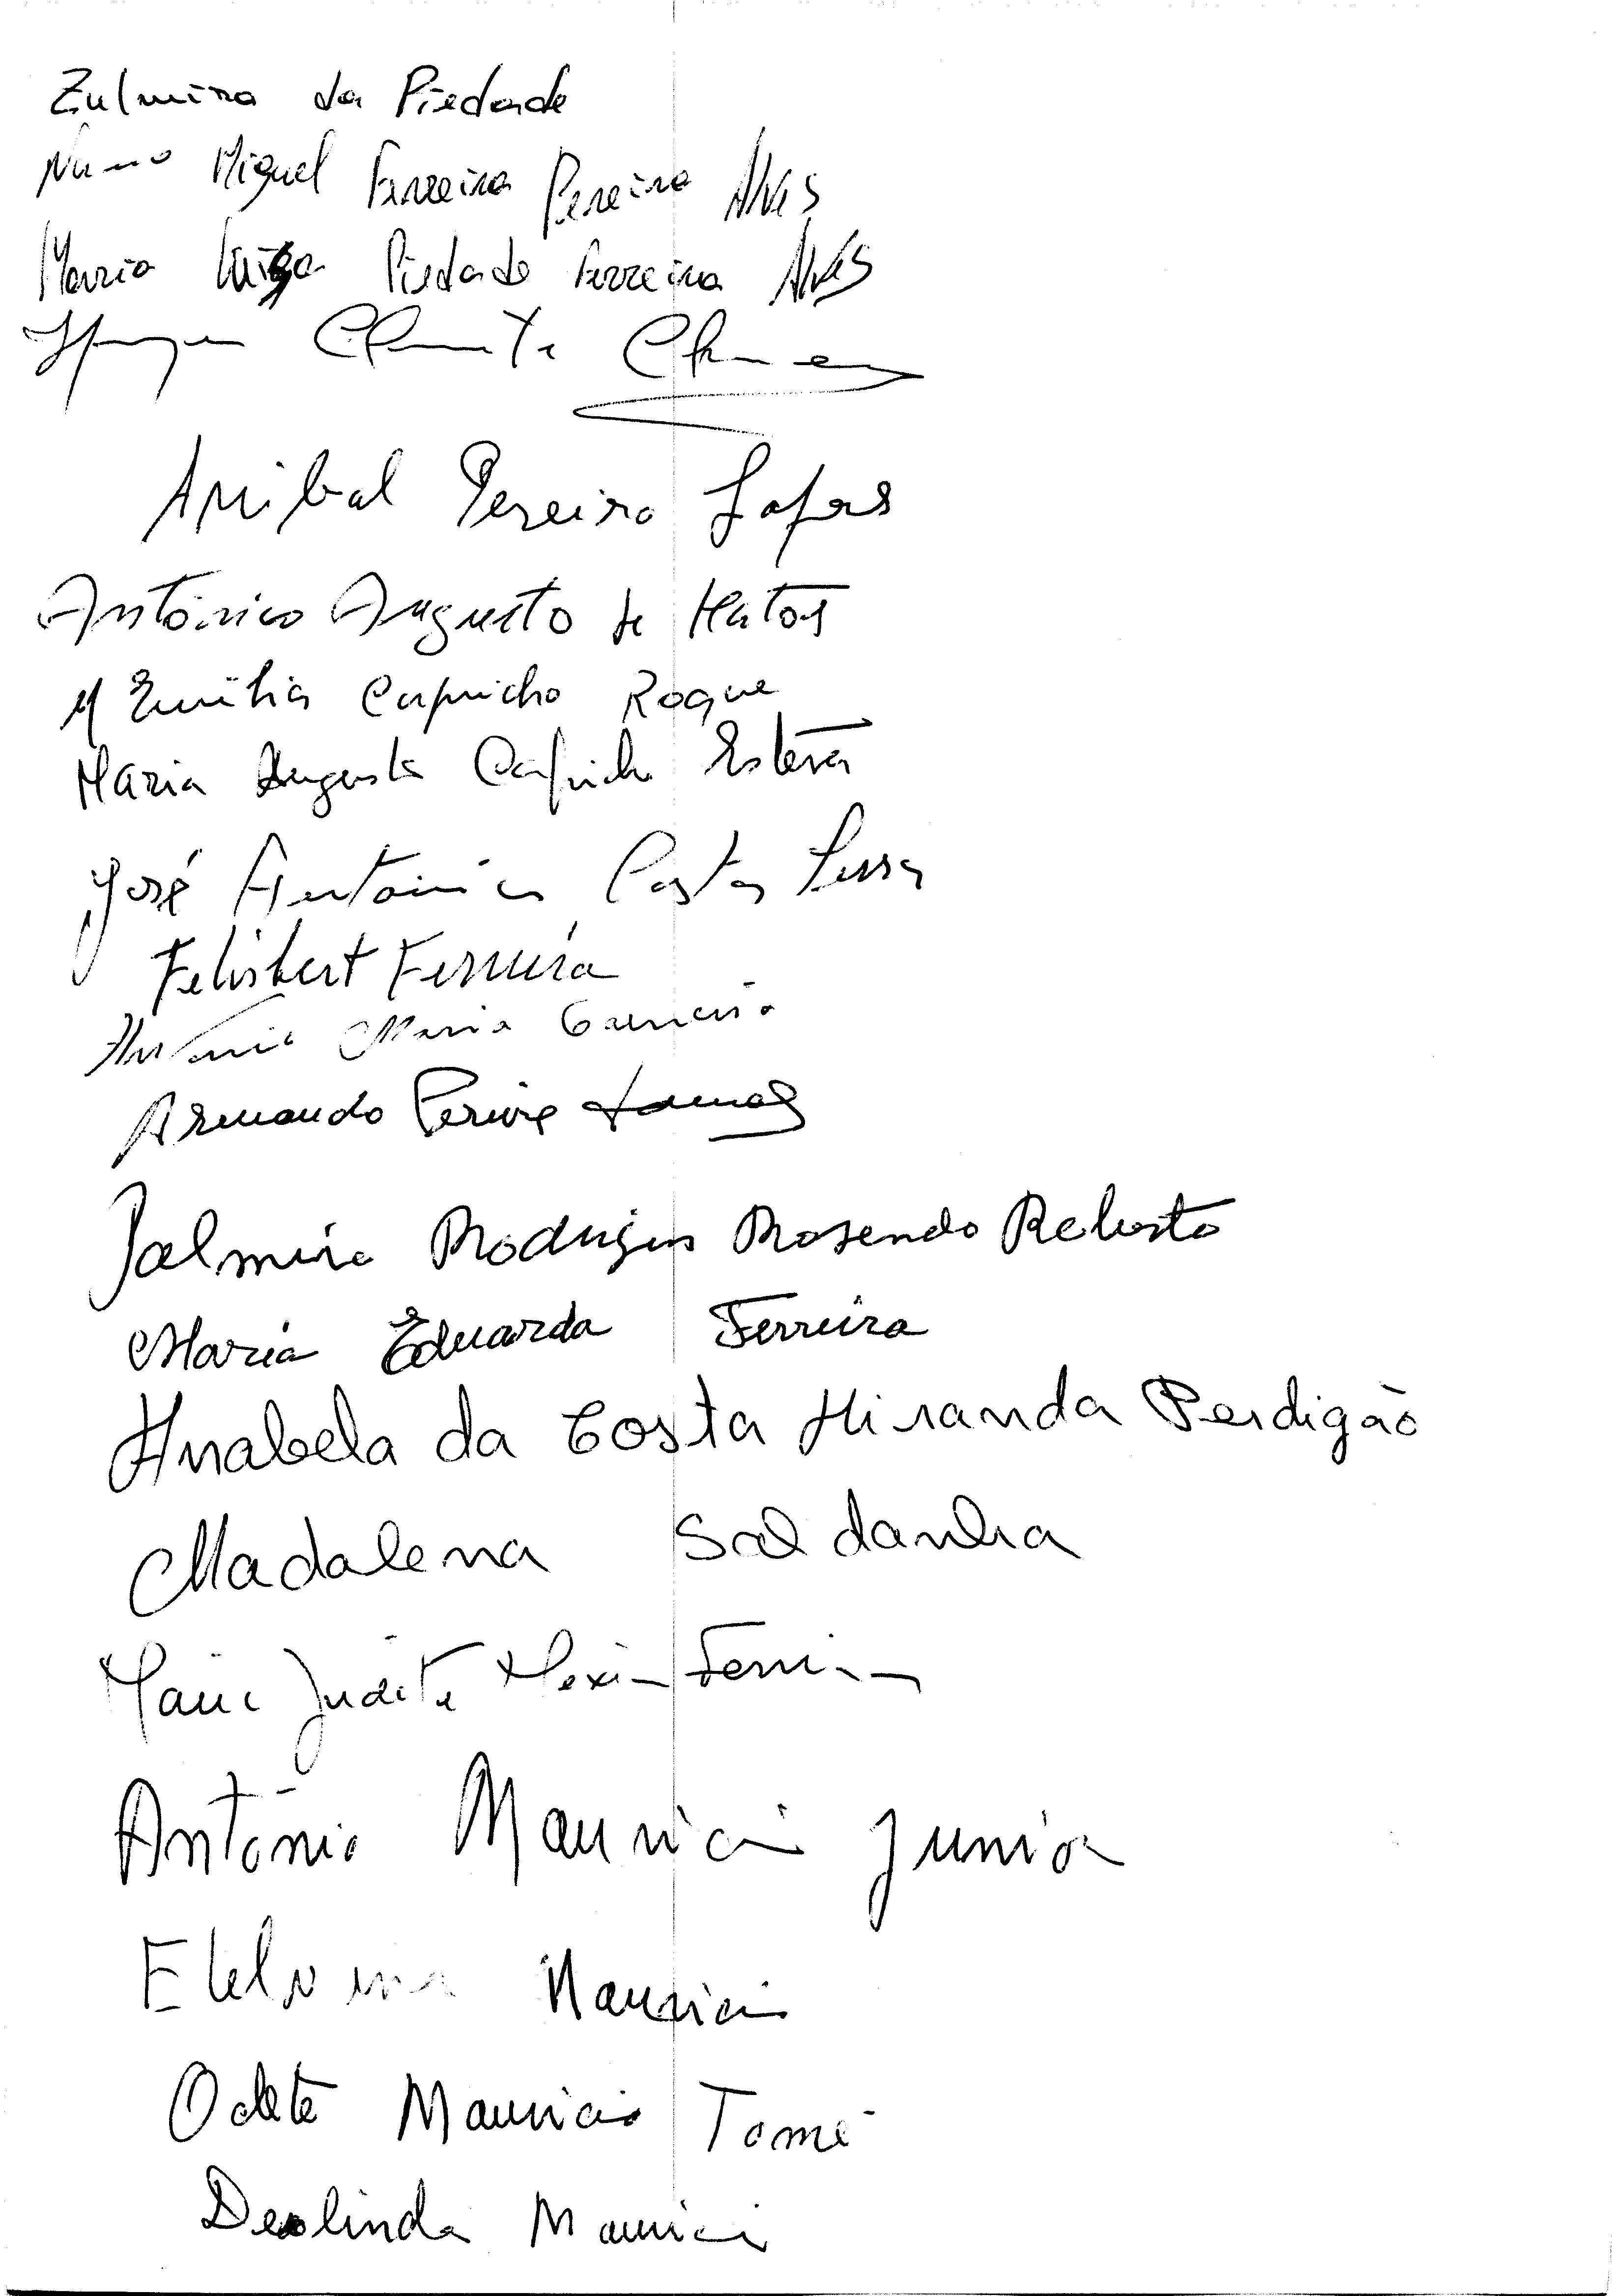 Zulmira da Piedade
Nuno Miguel Ferreira Pereira Alves
Maria Luisa Piedade Ferreira Alves
Anibal Pereira
António Augusto de Matos
Mª Emilia Capricho Roque
Maria Augusta Capricho Esteva
José António Costa
Felisbert Ferreira
António Maria
Armando Pereira
Palmira Rodrigues Rosendo
Maria Eduarda Ferreira
Anabela da Costa Miranda Perdigão
Madalena Saldanha
Maria Judite Ferreira
António Mauricio Junior
Etelvina Mauricio
Odete Mauricio Tomé
Deolinda Mauricio